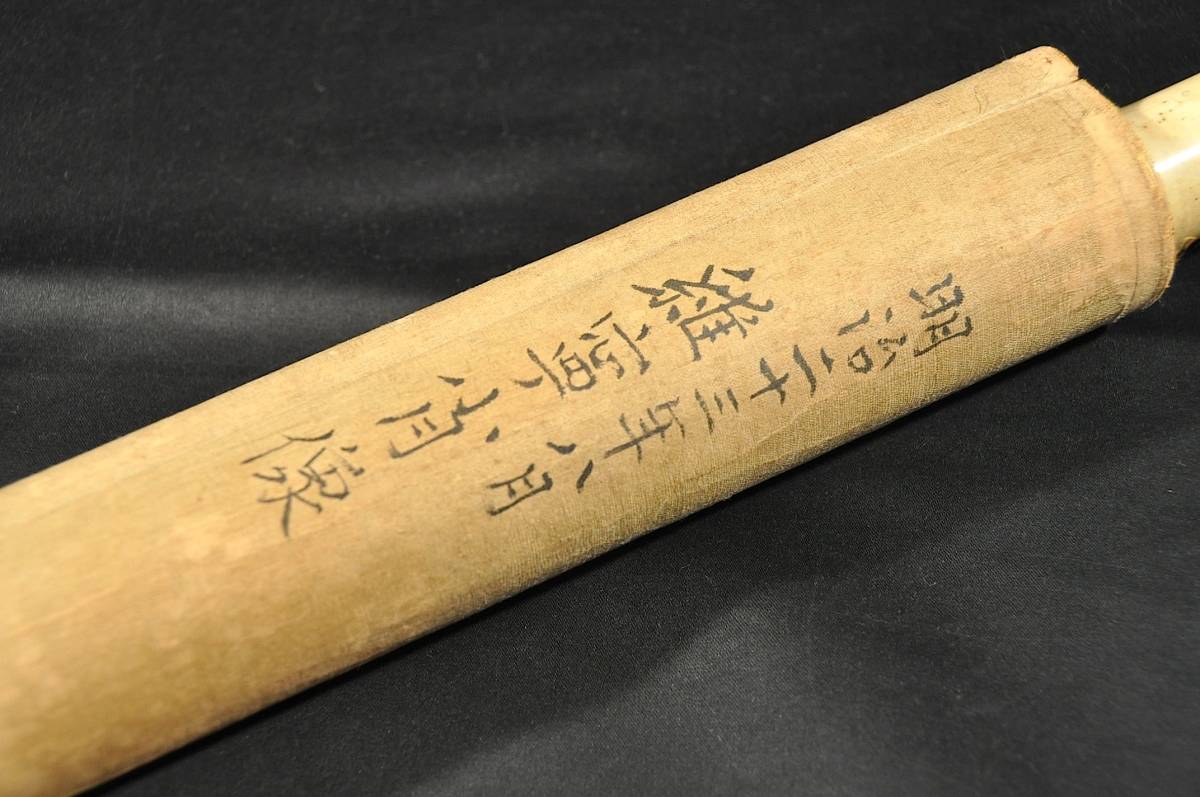 維寧肖像
明治二十三年八月